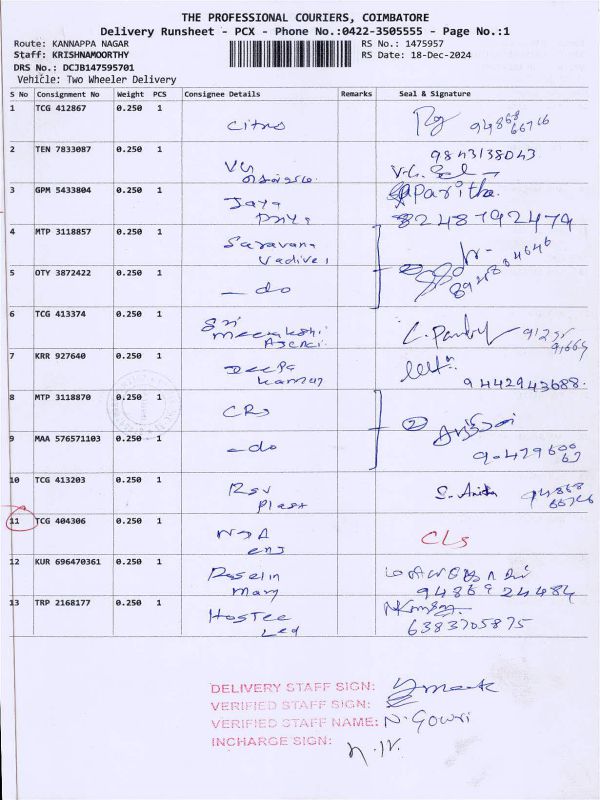 THE PROFESSIONAL COURIERS, COIMBATORE
Delivery Runsheet - PCX - Phone No.:0422-3505555 - Page No.:1
Route: KANNAPPA NAGAR RS No.: 1475957
Staff: KRISHNAMOORTHY RS Date: 18-Dec-2024
DRS No.: DCJB147595701
Vehicle: Two Wheeler Delivery
S No Consignment No Weight PCS Consignee Details Remarks Seal & Signature
1 TCG 412867 0.250 1
Citrus
2 TEN 7833087 0.250 1 9843138043
VG
3 GPM 5433804 0.250 1 Paritha
Jaya
Priya 8248792479
4 MTP 3118857 0.250 1
Saravana
Vadivel
5 OTY 3872422 0.250 1
- do
6 TCG 413374 0.250 1
Sri
Meenakshi
Agenci
7 KRR 927640 0.250 1
Deepa
Kannan 9442943688
8 MTP 3118870 0.250 1
CRs 2
9 MAA 576571103 0.250 1
- do
10 TCG 413203 0.250 1
RSV S. Anitha 94868
Plast 66726
11 TCG 404306 0.250 1
CLs
Enj
12 KUR 696470361 0.250 1
Roselin
Mary 9486924484
13 TRP 2168177 0.250 1
Hostee 6383705875
Led
DELIVERY STAFF SIGN:
VERIFIED STAFF SIGN:
VERIFIED STAFF NAME: N. Gowri
INCHARGE SIGN: